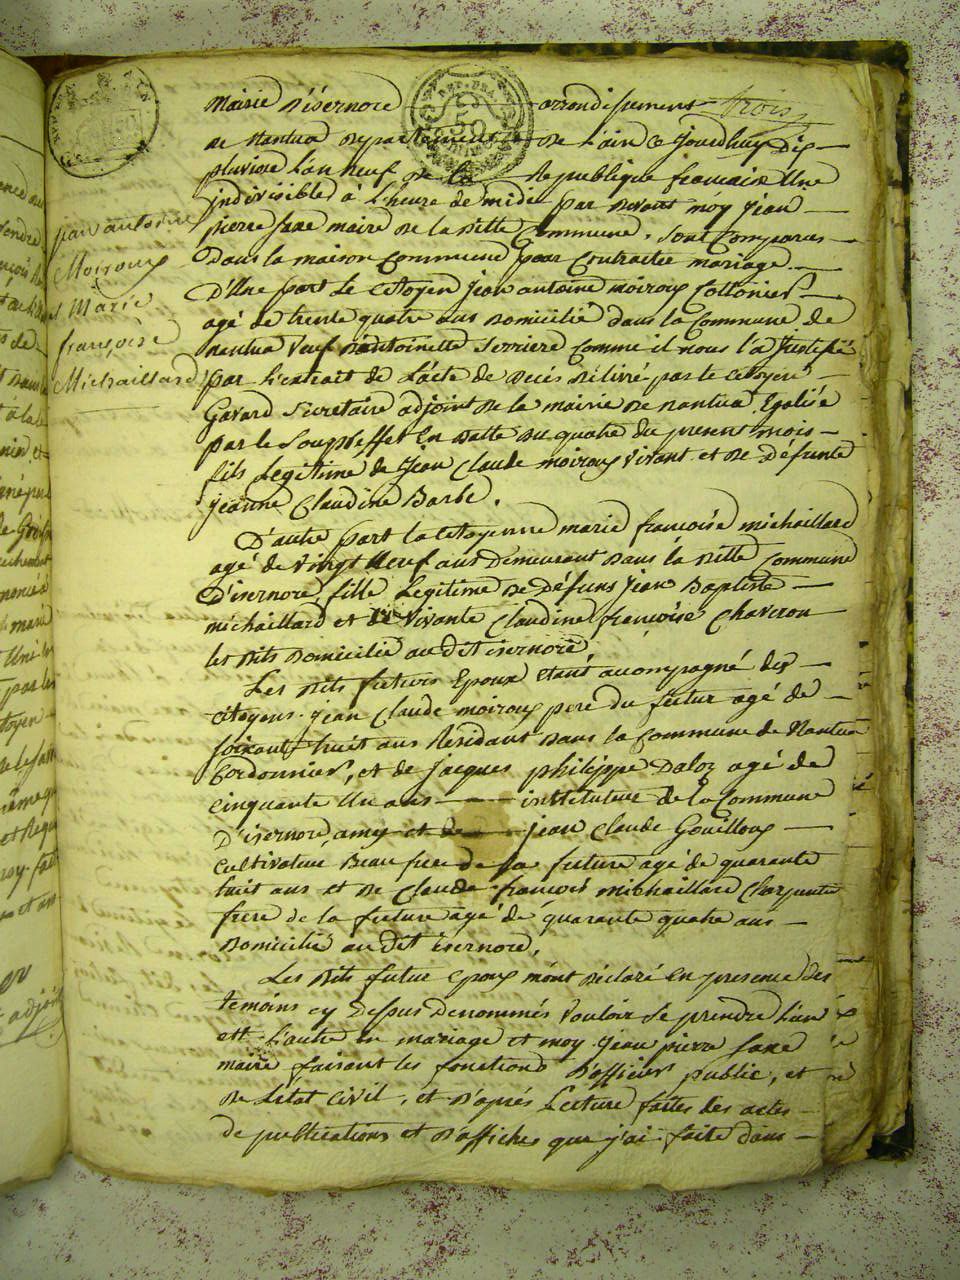 trois
Mairie D'isernore arrondissement
de Nantua Departement de L'ain Ce Jourdhuy Dix
pluviose L'an neuf de la Republique francaise Une
indivisible à L'heure de midi par devant moy Jean
pierre maire de la ditte Commune, sont Comparus
Dans la maison Commune pour Contracter mariage
D'Une part Le Citoyen Jean antoine moiroux Cottonier
agé de trente quatre ans Domicilié dans la Commune de
nantua Veuf D'antoinette Serriere Comme il nous l'a Justifié
par L'extrait de L'acte de decés Délivré par le Citoyen
Gavard Secretaire adjoint de la mairie de nantua Egalisé
par le Souspreffet En datte du quatre du present mois
fils Legitime de Jean Claude moiroux vivant et de Défunte
jeanne Claudine Barbe.
D'autre part la Citoyenne marie françoise michaillard
agé de vingt Neuf ans Demeurant Dans la ditte Commune
D'isernore, fille Legitime de défuns Jean Baptiste
michaillard et de Vivante Claudine françoise Chaveron
les dits Domicilié au dit isernore,
Les dits futurs Epoux etant accompagné des
Citoyens jean Claude moiroux pere du futur agé de
soixante huit ans Résidant Dans la Commune de Nantua
Cordonnier, et de jacques philippe Daloz agé de
Cinquante Un ans instituteur de la Commune
D'isernore, amy et de jean Claude Gouilloux
Cultivateur Beau frere de la future agé de quarante
huit ans et de Claude françois michaillard Charpentier
frere de la future agé de quarante quatre ans
Domicilié au dit isernore,
Les dits futur epoux m'ont déclaré En presence des
temoins cy Dessus Denommés Vouloir Se prendre L'un
ett L'autre En mariage et moy Jean pierre
maire faisant les fonctions D'officier public, et
de L'état Civil, et D'aprés Lecture faites des actes
de publications et D'affiches que j'ai faite dans
jean antoine
Moiroux
et Marie
françoise
Michaillard